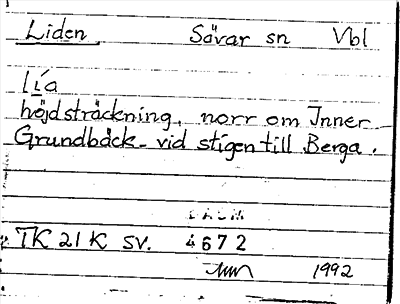 Liden Sävar sn Vbl
lía
höjdsträckning, norr om Inner
Grundbäck vid stigen till Berga.
DAUM
TK 21 K SV. 4672
1992